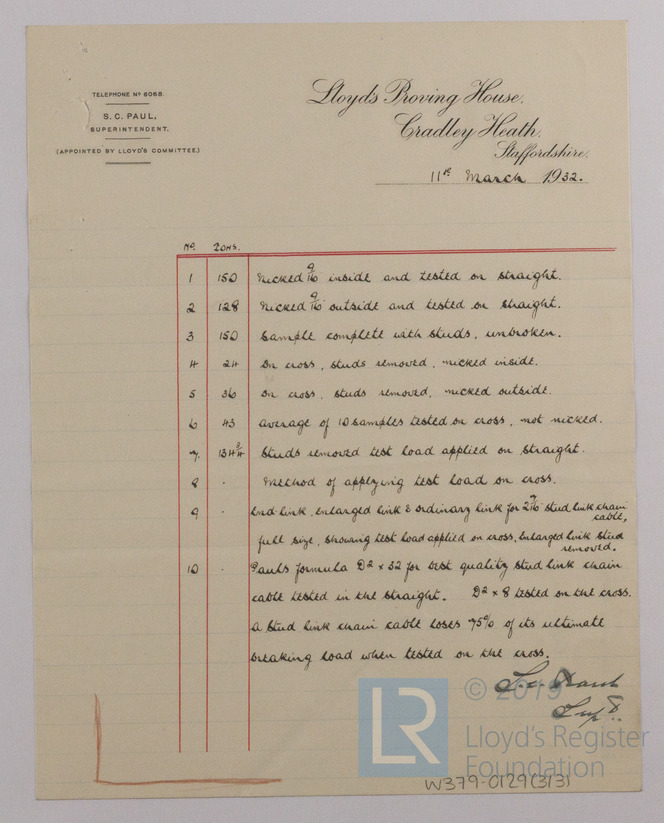 TELEPHONE Nº 6068.
S. C. PAUL,
SUPERINTENDENT.
(APPOINTED BY LLOYD'S COMMITTEE.)
Lloyd's Proving House,
Cradley Heath,
Staffordshire.
11th March 1932.
No. Tons.
1 150 Nicked 9/16 inside and tested on straight.
2 128 Nicked 9/16 outside and tested on straight.
3 150 Sample complete with studs, unbroken.
4 24 On cross, studs removed, nicked inside.
5 36 On cross, studs removed, nicked outside.
6 43 Average of 10 samples tested on cross, not nicked.
7. 134 3/4 Studs removed test load applied on straight.
8 . Method of applying test load on cross.
9 . End link, enlarged link & ordinary link for 2 9/16 stud link chain
cable,
full size, showing test load applied on cross, enlarged link stud
removed.
10 . Pauls formula D² x 32 for best quality stud link chain
cable tested in the straight. D² x 8 tested on the cross.
A stud link chain cable loses 75% of its ultimate
breaking load when tested on the cross.
S. C. Paul
Supt.
LR © 2019
Lloyd's Register
Foundation
W379-0129(3/3)